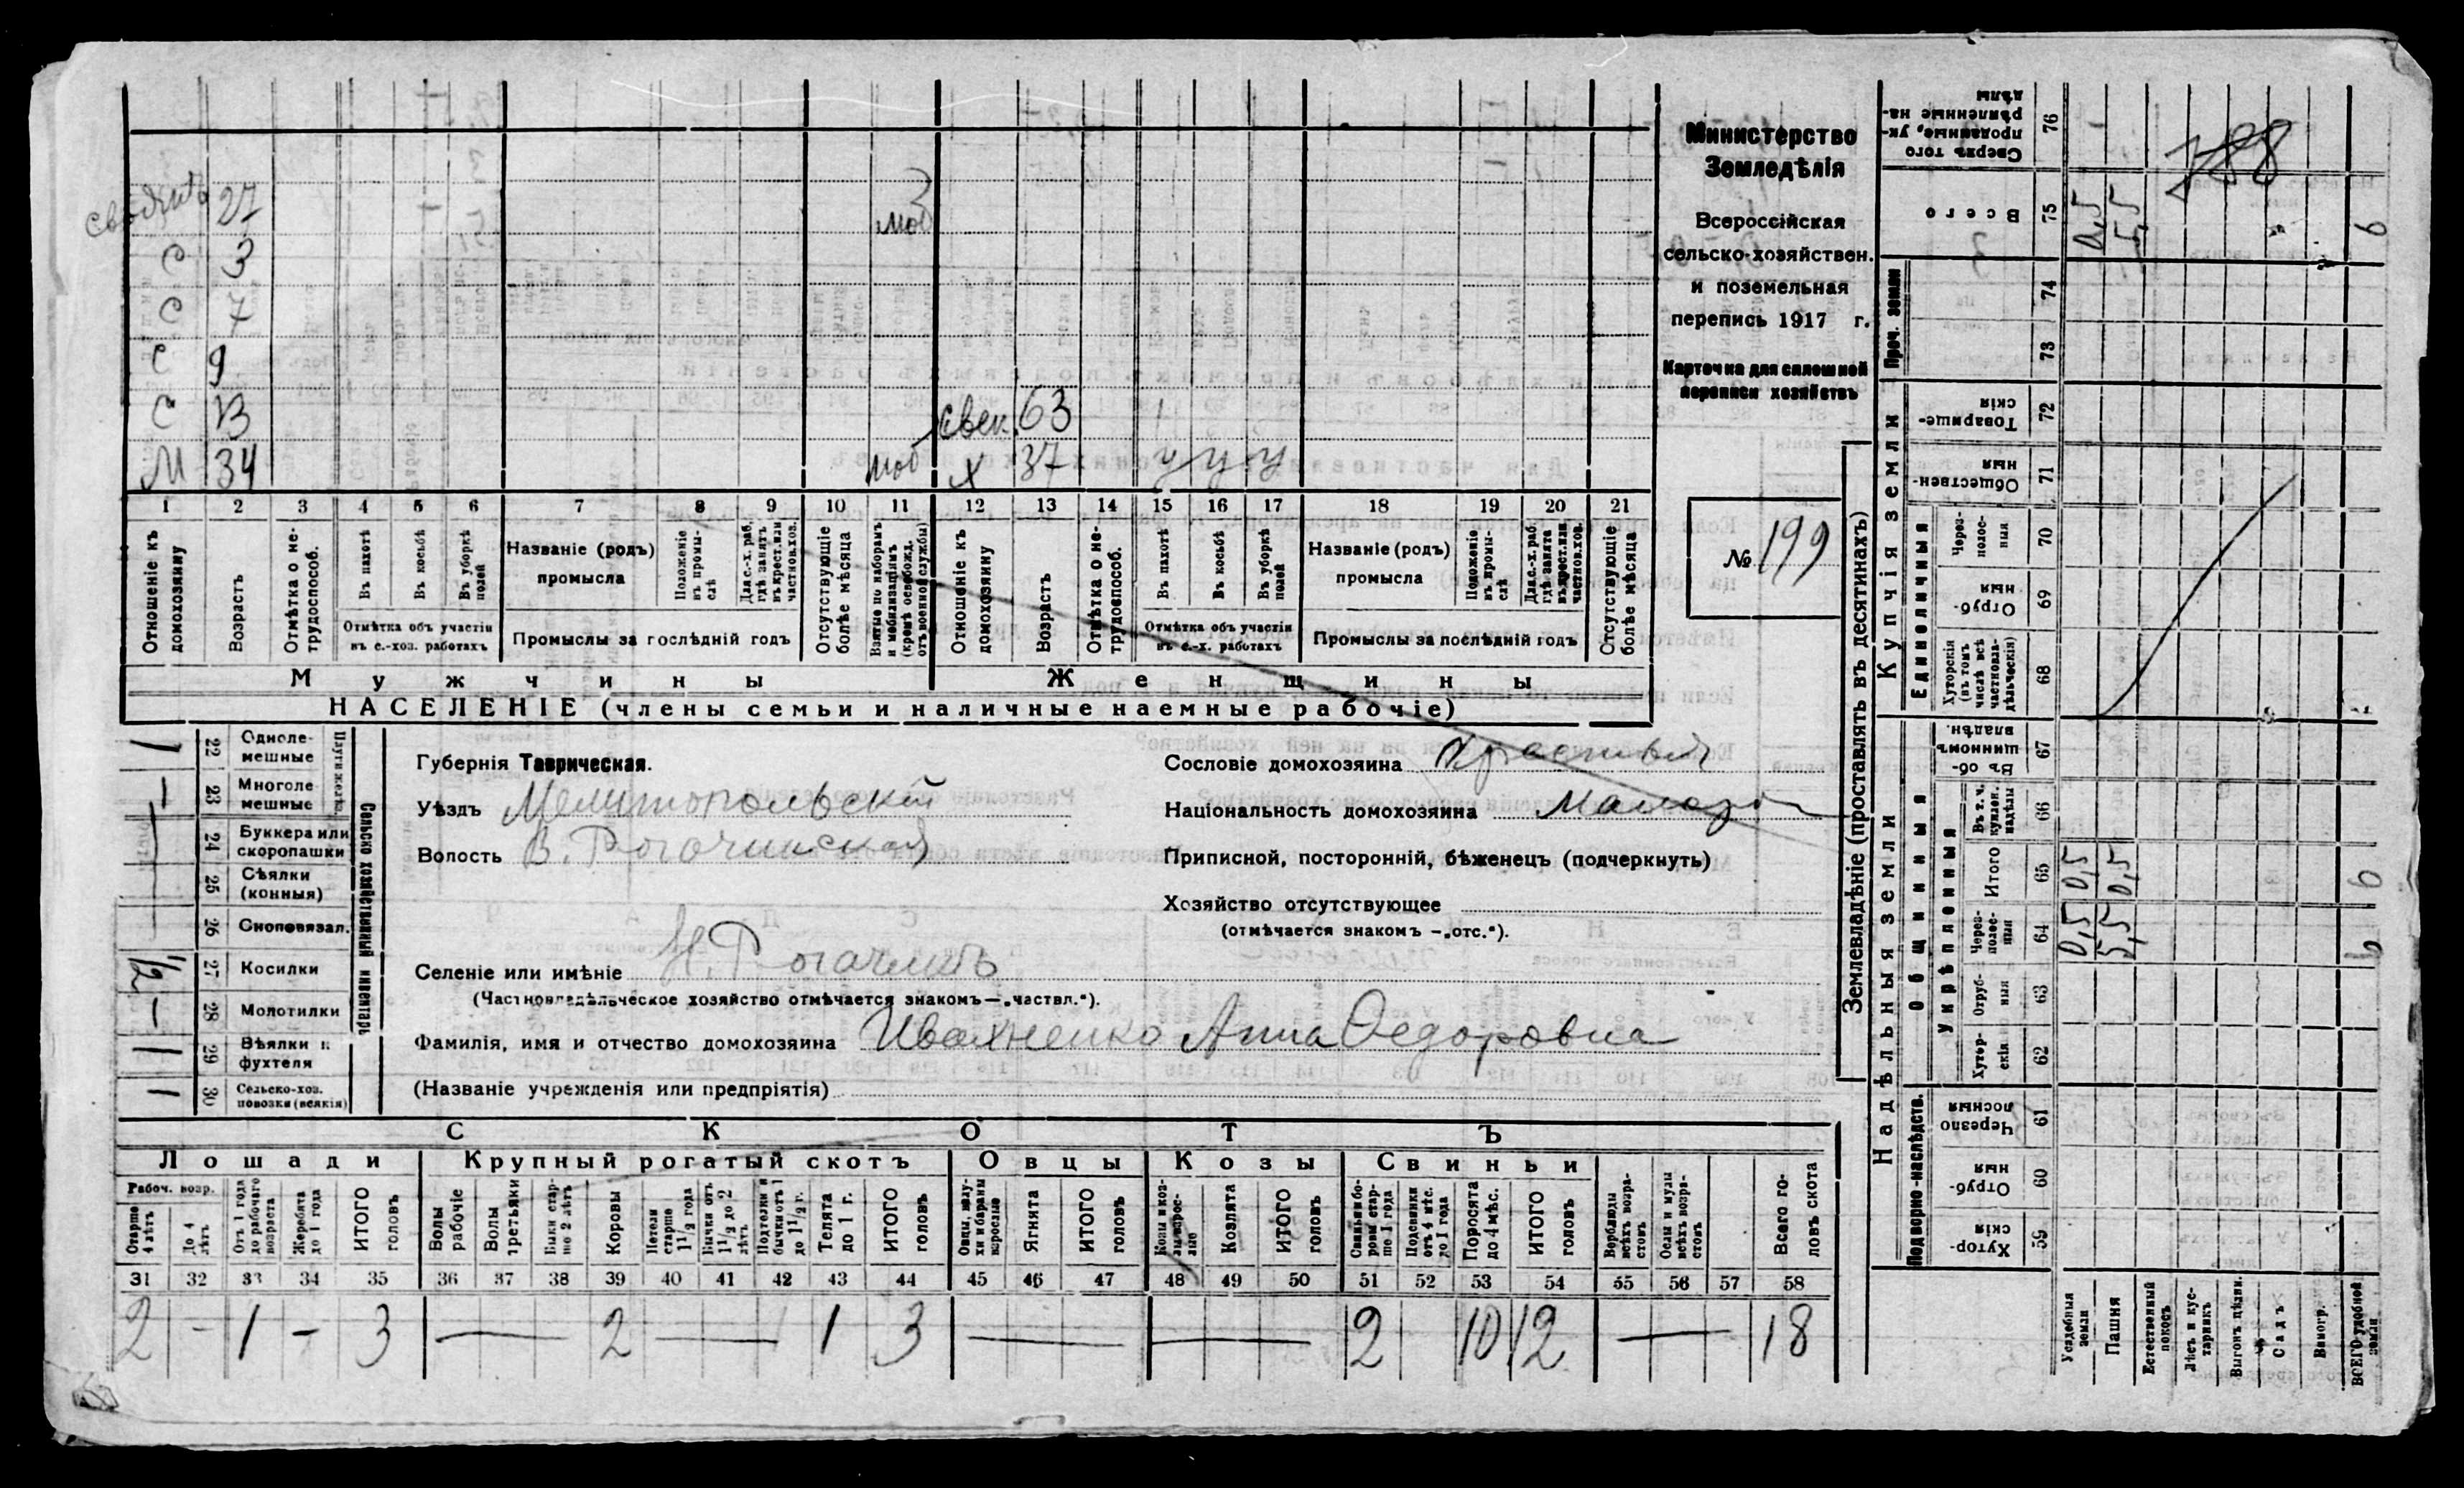 сводитъ 27 моб
С 3
С 7
С 9
С 13 свек. 63
М 34 моб х 37 у у у
1 2 3 4 5 6 7 8 9 10 11 12 13 14 15 16 17 18 19 20 21
Отношеніе къ домохозяину
Возрастъ
Отмѣтка о не-трудоспособ.
Въ пахотѣ
Въ косьбѣ
Въ уборкѣ полей
Отмѣтка объ участіи
въ с.-хоз. работахъ
Названіе (родъ)
промысла
Положеніе въ промы-слѣ
Для с.-х. раб. гдѣ занятъ въ крест. или частнов. хоз.
Промыслы за послѣдній годъ
Отсутствующіе болѣе мѣсяца
Взятые по наборамъ и мобилизаціямъ (кромѣ освобожд. отъ военной службы)
Отношеніе къ домохозяину
Возрастъ
Отмѣтка о не-трудоспособ.
Въ пахотѣ
Въ косьбѣ
Въ уборкѣ полей
Отмѣтка объ участіи
въ с.-х. работахъ
Названіе (родъ)
промысла
Положеніе въ промы-слѣ
Для с.-х. раб. гдѣ занята въ крест. или частнов. хоз.
Промыслы за послѣдній годъ
Отсутствующіе болѣе мѣсяца
Мужчины Женщины
НАСЕЛЕНІЕ (члены семьи и наличные наемные рабочіе)
Министерство
Земледѣлія
Всероссійская
сельско-хозяйствен.
и поземельная
перепись 1917 г.
Карточка для сплошной
переписи хозяйствъ
№ 199
Сельско хозяйственный инвентарь
1 22 Одноле-мешные
— 23 Многоле-мешные
24 Буккера или скоропашки
25 Сѣялки (конныя)
26 Сноповязал.
1/2 27 Косилки
— 28 Молотилки
1 29 Вѣялки и фухтеля
1 30 Сельско-хоз. повозки (всякія)
Губернія Таврическая.
Уѣздъ Мелитопольскій
Волость В. Рогачикская
Сословіе домохозяина
Національность домохозяина
Приписной, посторонній, бѣженецъ (подчеркнуть)
Хозяйство отсутствующее
(отмѣчается знакомъ —„отс.“).
Селеніе или имѣніе Н. Рогачикъ
(Частновладѣльческое хозяйство отмѣчается знакомъ—„частвл.“).
Фамилія, имя и отчество домохозяина Ивахненко Анна Федоровна
(Названіе учрежденія или предпріятія)
СКОТЪ
Лошади Крупный рогатый скотъ Овцы Козы Свиньи
Рабоч. возр.
Старше 4 лѣтъ
До 4 лѣтъ
Отъ 1 года до рабочаго возраста
Жеребята до 1 года
ИТОГО головъ
Волы рабочіе
Волы третьяки
Быки стар-ше 2 лѣтъ
Коровы
Нетели старше 1 1/2 года
Бычки отъ 1 1/2 до 2 лѣтъ
Подтелки и бычки отъ 1 до 1 1/2 г.
Телята до 1 г.
ИТОГО головъ
Овцы, валу-хи и бараны взрослые
Ягнята
ИТОГО головъ
Козы и коз-лы взрос-лые
Козлята
ИТОГО головъ
Свиньи и бо-ровы стар-ше 1 года
Подсвинки отъ 4 мѣс. до 1 года
Поросята до 4 мѣс.
ИТОГО головъ
Верблюды всѣхъ возра-стовъ
Ослы и мулы всѣхъ возра-стовъ
Всего го-ловъ скота
31 32 33 34 35 36 37 38 39 40 41 42 43 44 45 46 47 48 49 50 51 52 53 54 55 56 57 58
2 — 1 — 3 — 2 — 1 3 — — 2 10 12 — 18
Землевладѣніе (проставлять въ десятинахъ)
Надѣльныя земли Купчія земли Проч. земли
Подворно-наслѣдств.
Общинныя
Укрѣпленныя
Единоличныя
Хутор-скія 59
Отруб-ныя 60
Черезпо лосныя 61
Хутор-скія 62
Отруб-ныя 63
Через-полос-ныя 64
Итого 65
Въ т. ч. куплен. надѣлы 66
Въ об-щинномъ владѣн. 67
Хуторскія (въ томъ числѣ всѣ частновла-дѣльческія) 68
Отруб-ныя 69
Через-полос-ныя 70
Обществен-ныя 71
Товарище-скія 72
73
74
Всего 75
Сверхъ того проданные, ук-рѣпленные на-дѣлы 76
Усадебныя земли 0,5 0,5 0,5
Пашня 5,5 0,5 5,5
Естественный покосъ
Лѣсъ и кус-тарникъ
Выгонъ цѣлин.
Садъ
Виногр.
ВСЕГО удобной земли 6 6 6
788